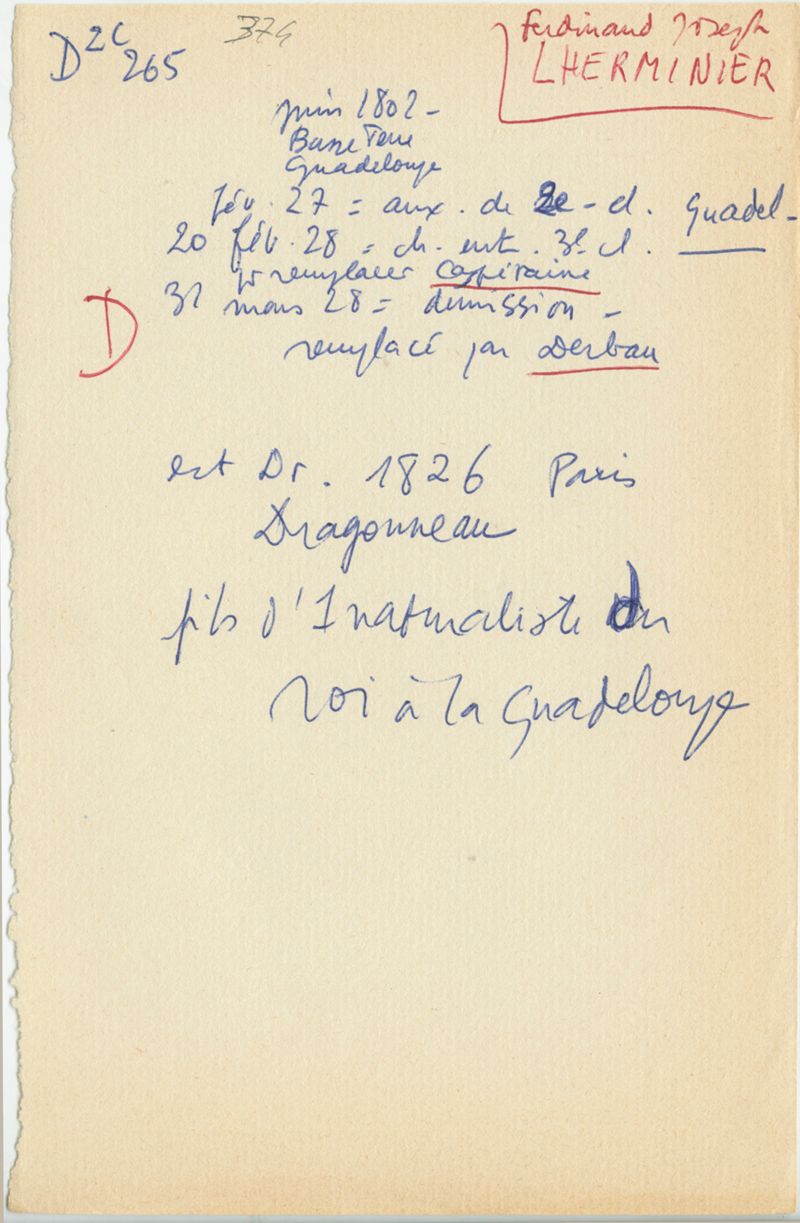 D 2C 265
374
Ferdinand Joseph
LHERMINIER
juin 1802 -
Basse Terre
Guadeloupe
fév. 27 = aux. de 2e - cl. Guadel -
20 fév. 28 = ch. ent. 3e cl.
pr remplacer Capitaine
31 mars 28 = démission -
D
remplacé par Derbau
est Dr. 1826 Paris
Dragonneau
fils d'1 naturaliste du
roi à la Guadeloupe